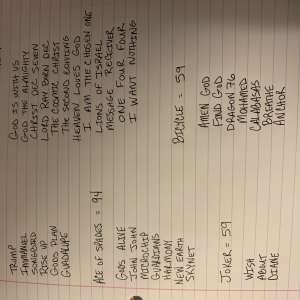 TRUMP
IMMANUEL
SONGBIRD
RISE UP
GODS PLAN
GUADALUPE
GOD IS WITH US
GOD THE ALMIGHTY
CHRIST DEC SEVEN
LORD RAY BORN DEC
THE COSMIC CHRIST
THE SECOND COMING
HEAVEN LOVES GOD
I AM THE CHOSEN ONE
LIONS OF ISRAEL
MESSAGE RECEIVER
ONE FOUR FOUR
I WANT NOTHING
ACE OF SPADES = 94
GODS ALIVE
JOHN JOHN
MICROCHIP
GUARDIANS
HARMONY
NEW EARTH
SKYNET
BICYCLE = 59
AMEN GOD
FIND GOD
DRAGON 76
MOHAMED
CALABASAS
BREATHE
ANCHOR
JOKER = 59
WISH
ADULT
DIANE